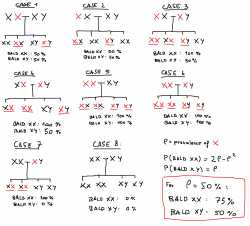 CASE 1
CASE 2
CASE 3
XX XY
XX XY
XX XY
XX XX XY XY
XX XX XY XY
XX XX XY XY
BALD XX: 50%
BALD XY: 50%
BALD XX: 50%
BALD XY: 50%
BALD XX: 100%
BALD XY: 50%
CASE 4
CASE 5
CASE 6
XX XY
XX XY
XX XY
XX XX XY XY
XX XX XY XY
XX XX XY XY
BALD XX: 100%
BALD XY: 50%
BALD XX: 100%
BALD XY: 100%
BALD XX: 100%
BALD XY: 100%
CASE 7
CASE 8:
XX XY
XX XY
XX XX XY XY
XX XX XY XY
BALD XX: 100%
BALD XY: 0%
BALD XX: 0%
BALD XY: 0%
P = prevalence of X
P(BALD XX) = 2P-P²
P(BALD XY) = P
FOR P = 50%:
BALD XX: 75%
BALD XY: 50%